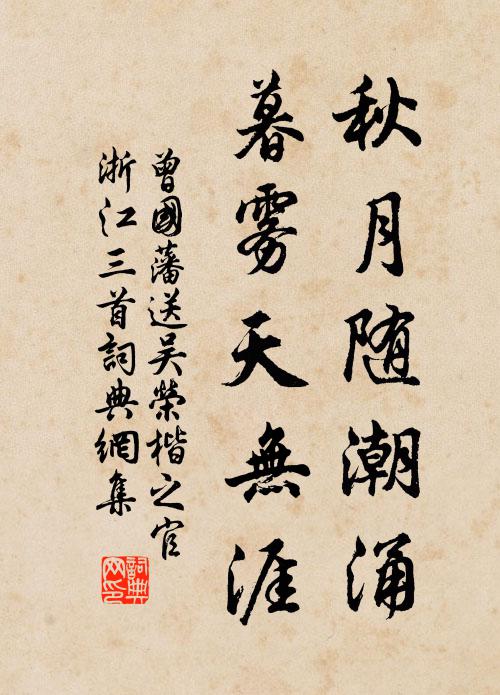 秋月随潮涌
暮雾天無涯
曾國藩送吴榮楷之官
浙江三首詞典網集
詞典网印